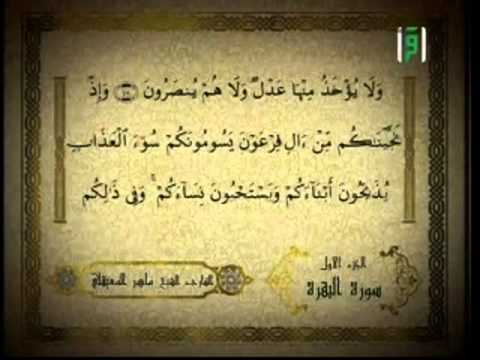 اقرأ
وَلَا يُؤْخَذُ مِنْهَا عَدْلٌ وَلَا هُمْ يُنصَرُونَ ۝ وَإِذْ
نَجَّيْنَٰكُم مِّنْ ءَالِ فِرْعَوْنَ يَسُومُونَكُمْ سُوٓءَ ٱلْعَذَابِ
يُذَبِّحُونَ أَبْنَآءَكُمْ وَيَسْتَحْيُونَ نِسَآءَكُمْ ۚ وَفِى ذَٰلِكُم
الجزء الأول
سورة البقرة
القارئ الشيخ ماهر المعيقلي